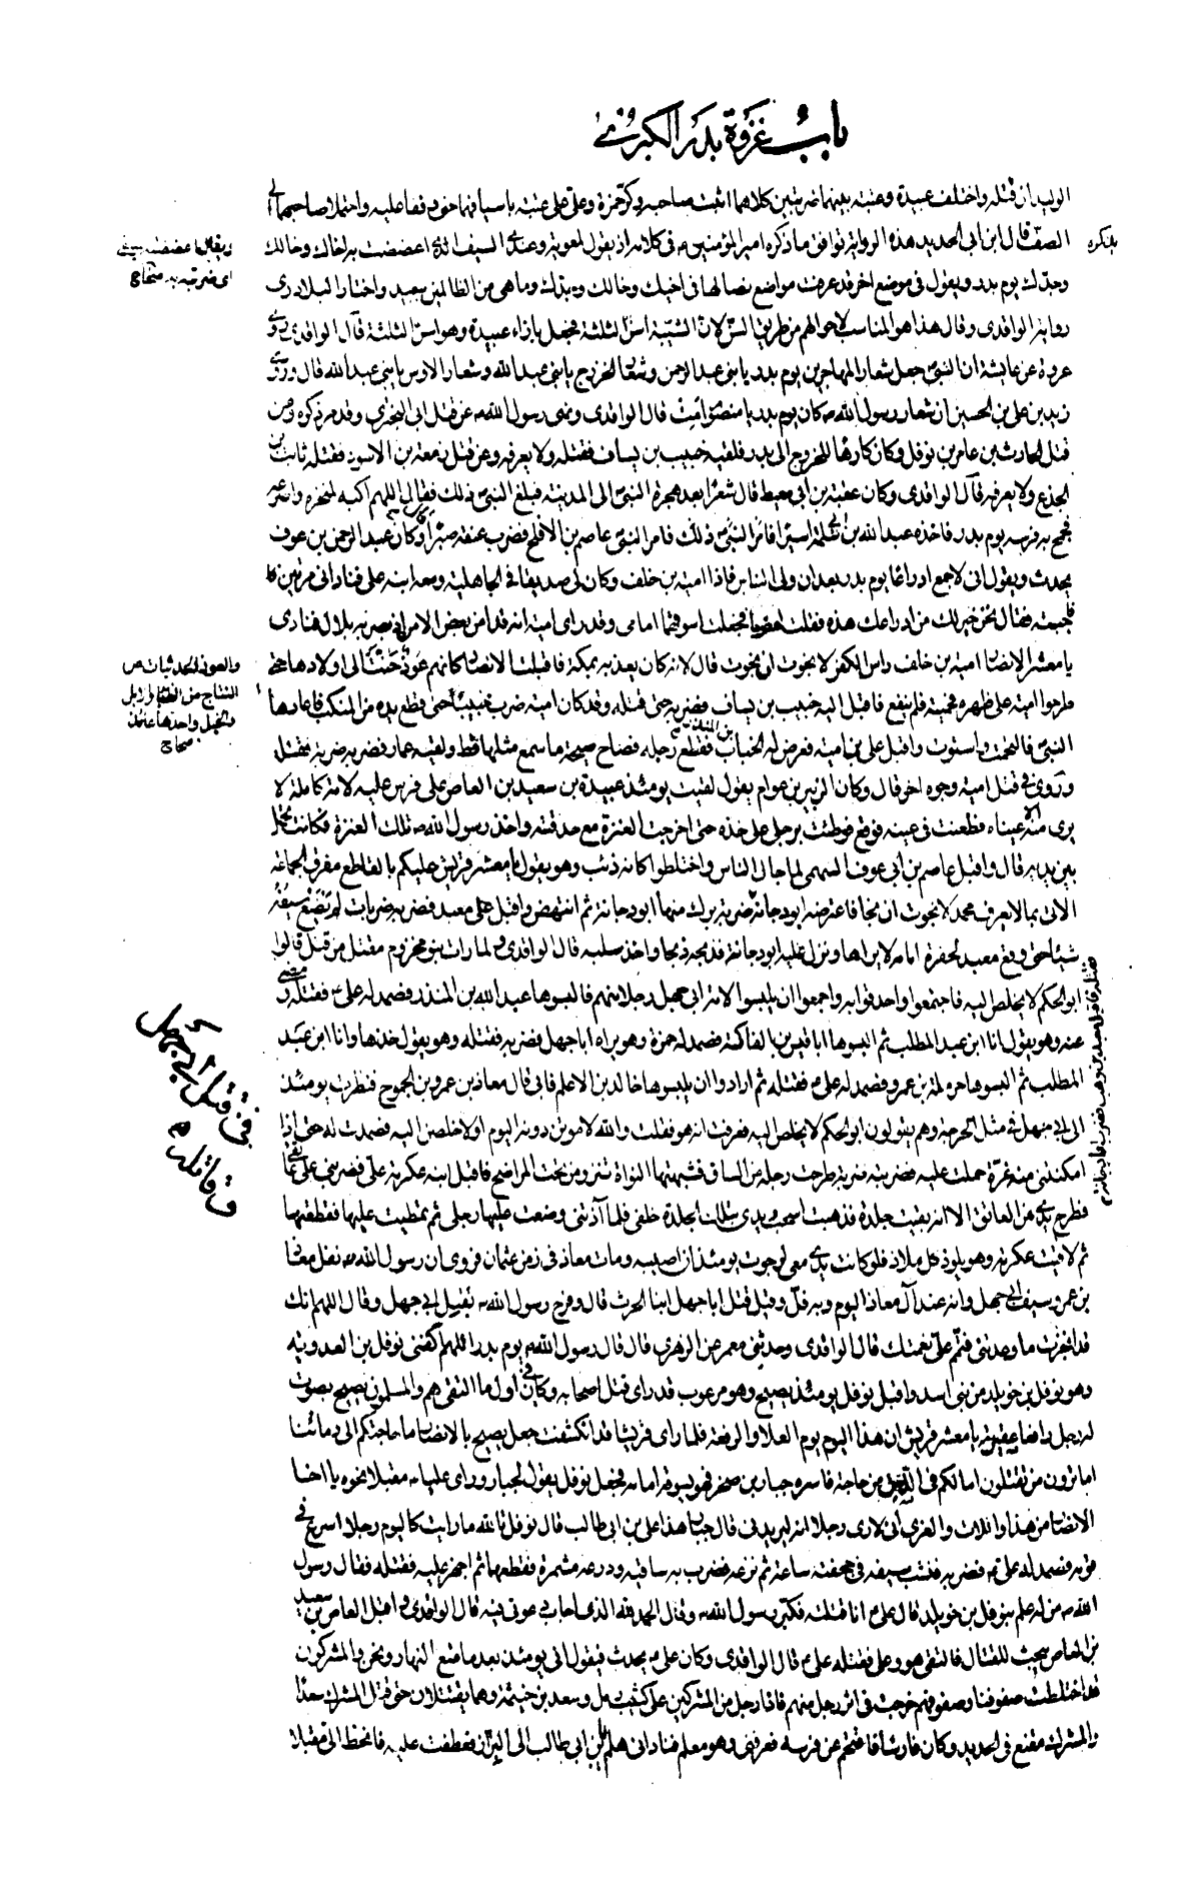 باب غزوة بدر الكبرى
الوليد ان قتله واختلف عبيدة وعتبة بينهما ضربتين كلاهما اثبت صاحبه وكر حمزة وعلي على عتبة باسيافهما حتى وقفا عليه واحتملا صاحبهما الى
الصف قال ابن ابى الحديد هذه الرواية توافق ما ذكره امير المؤمنين ع فى كلامه اذ يقول لمعوية وعندى السيف الذى اعضضت به اخاك وخالك
وجدك يوم بدر ويقول فى موضع اخر قد عرفت مواضع نصالها فى اخيك وخالك وجدك وما هى من الظالمين ببعيد واختار البلاذرى
رواية الواقدى وقال هذا هو المناسب لاحوالهم من طريق السن لان شيبة اسن الثلثة فجعل بازاء عبيدة وهو اسن الثلثة قال الواقدى وروى
عروة عن عايشة ان النبى ص جعل شعار المهاجرين يوم بدر يا بنى عبد الرحمن وشعار الخزرج يا بنى عبد الله وشعار الاوس يا بنى عبيد الله قال وروى
زيد بن على بن الحسين ان شعار رسول الله ص كان يوم بدر يا منصور امت قال الواقدى ونهى رسول الله ص عن قتل ابى البخترى وقد مر ذكره وعن
قتل الحارث بن عامر بن نوفل وكان كارها للخروج الى بدر فلقيه خبيب بن يساف فقتله ولا يعرفه وعن قتل زمعة بن الاسود فقتله ثابت بن
الجذع ولا يعرفه قال الواقدى وكان عقبة بن ابى معيط قال شعرا بعد هجرة النبى ص الى المدينة فبلغ النبى ص ذلك فقال اللهم اكبه لمنخره واصرعه
فجمح به فرسه يوم بدر فاخذه عبد الله بن سلمة اسيرا فامر النبى ص عاصم بن الافلح فضرب عنقه صبرا وكان عبد الرحمن بن عوف
يحدث ويقول انى لاجمع ادراعا يوم بدر بعد ان ولى الناس فاذا امية بن خلف وكان لى صديقا فى الجاهلية ومعه ابنه على فنادانى مرتين
فاجبته فقال نحن خير لك من ادراعك هذه فقلت امضيا فجعلت اسوقهما امامى وقد راى امية انه قد امن بعض الامن اذ بصر به بلال فنادى
يا معشر الانصار امية بن خلف راس الكفر لا نجوت ان نجوت قال لانه كان يعذبه بمكة فاقبلت الانصار كانهم عوذ حنت الى اولادها حتى
طرحوا امية على ظهره فحميته فلم ينفع فاقبل اليه خبيب بن يساف فضربه حتى قتله وقد كان امية ضرب خبيبا حتى قطع يده من المنكب فاعادها
النبى ص فالتحمت واستوت واقبل على بن امية فعرض له الخباب بن المنذر فقطع رجله فصاح صيحة ما سمع مثلها قط ولقيه عمار فضربه ضربة فقتله
وروى فى قتل امية وجوه اخر قال وكان الزبير بن عوام يقول لقيت يومئذ عبيدة بن سعيد بن العاص على فرس عليه لامة كاملة لا
يرى منه الا عيناه فطعنت فى عينه فوقع فوطئت برجلى على خده حتى اخرجت العنزة مع حدقته واخذ رسول الله ص تلك العنزة فكانت تحمل
بين يديه قال واقبل عاصم بن ابى عوف السهمى لما جال الناس واختلطوا كانه ذئب وهو يقول يا معشر قريش عليكم بالقاطع مفرق الجماعة
الاتى بما لا يعرف محمد لا نجوت ان نجا فاعترضه ابو دجانة ضربة برك منها ابو دجانة ثم انتهض واقبل على معبد فضربه ضربات لم يصنع سيفه
شيئا حتى وقع معبد لحفرة امامه لا يراها ونزل عليه ابو دجانة فذبحه ذبحا واخذ سلبه قال الواقدى ولما رات بنو مخزوم مقتل من قتل قالوا
ابو الحكم لا يخلص اليه فاجتمعوا واحدقوا به واجمعوا ان يلبسوا لامة ابى جهل رجلا منهم فالبسوها عبد الله بن المنذر فصمد له على ع فقتله ومضى
عنه وهو يقول انا ابن عبد المطلب ثم البسوها ابا قيس بن الفاكه فصمد له حمزة وهو يراه ابا جهل فضربه فقتله وهو يقول خذها وانا ابن عبد
المطلب ثم البسوها حرملة بن عمرو فصمد له على ع فقتله ثم ارادوا ان يلبسوها خالد بن الاعلم فابى قال معاذ بن عمرو بن الجموح فنظرت يومئذ
الى ابى جهل فى مثل الحرجة وهم يقولون ابو الحكم لا يخلص اليه فعرفت انه هو فقلت والله لاموتن دونه اليوم او لاخلصن اليه فصمدت له حتى اذا
امكنتنى منه غرة حملت عليه فضربته ضربة طرحت رجله من الساق فشبهتها النواة تنزو من تحت المراضخ فاقبل ابنه عكرمة على فضربنى على عاتقى
فطرح يدى من العاتق الا انه بقيت جلدة فذهبت اسحب يدى بتلك الجلدة خلفى فلما آذتنى وضعت عليها رجلى ثم تمطيت عليها فقطعتها
ثم لاقيت عكرمة وهو يلوذ كل ملاذ فلو كانت يدى معى لرجوت يومئذ ان اصيبه ومات معاذ فى زمن عثمان فروى ان رسول الله ص نفل معاذ
بن عمرو سيف ابى جهل وانه عند آل معاذ اليوم وبه فل وقيل قتل ابا جهل ابنا الحرث قال وفرح رسول الله ص بقتل ابى جهل وقال اللهم انك
قد انجزت ما وعدتنى فتمم على نعمتك قال الواقدى وحدثنى معمر عن الزهرى قال قال رسول الله ص يوم بدر اللهم اكفنى نوفل بن العدوية
وهو نوفل بن خويلد من بنى اسد واقبل نوفل يومئذ يصيح وهو مرعوب قد راى قتل اصحابه وكان فى اول ما التقى هم والمسلمون يصيح بصوت
له زجل رافعا عقيرته يا معشر قريش ان هذا اليوم يوم العلاء والرفعة فلما راى قريشا قد انكشفت جعل يصيح بالانصار ما حاجتكم الى دمائنا
اما ترون من تقتلون اما لكم فى اللبن من حاجة فاسره جبار بن صخر فهو يسوقه امامه فجعل نوفل يقول لجبار وراى عليا ع مقبلا نحوه يا اخا
الانصار من هذا واللات والعزى انى لارى رجلا انه ليريدنى قال جبار هذا على بن ابى طالب قال نوفل تالله ما رايت كاليوم رجلا اسرع فى
قومه فصمد له على ع فضربه فنشب سيفه فى حجفته ساعة ثم نزعه فضرب به ساقيه ودرعه مشمرة فقطعها ثم اجهز عليه فقتله فقال رسول
الله ص من له علم بنوفل بن خويلد قال على ع انا قتلته فكبر رسول الله ص وقال الحمد لله الذى اجاب دعوتى فيه قال الواقدى واقبل العاص بن سعيد
بن العاص يبحث للقتال فالتقى هو وعلى فقتله على ع قال الواقدى وكان على ع يحدث فيقول انى يومئذ بعد ما متع النهار ونحن والمشركون
قد اختلطت صفوفنا وصفوفهم خرجت فى اثر رجل منهم فاذا رجل من المشركين على كثيب رمل وسعد بن خيثمة وهما يقتتلان حتى قتل المشرك سعدا
والمشرك مقنع فى الحديد وكان فارسا فاقتحم عن فرسه فعرفنى وهو معلم فنادانى هلم يا ابن ابى طالب الى البراز فعطفت عليه فانحط الى مقبلا
يذكره
ويقال اعضضته بسيفى
اى ضربته به صحاح
والعوذ الحديثات
النتاج من الظباء والابل
والخيل واحدها عائذ
صحاح
فى قتل ابى جهل
وقاتله
فقتله فاقبل معبد بن وهب فضرب ابا دجانة